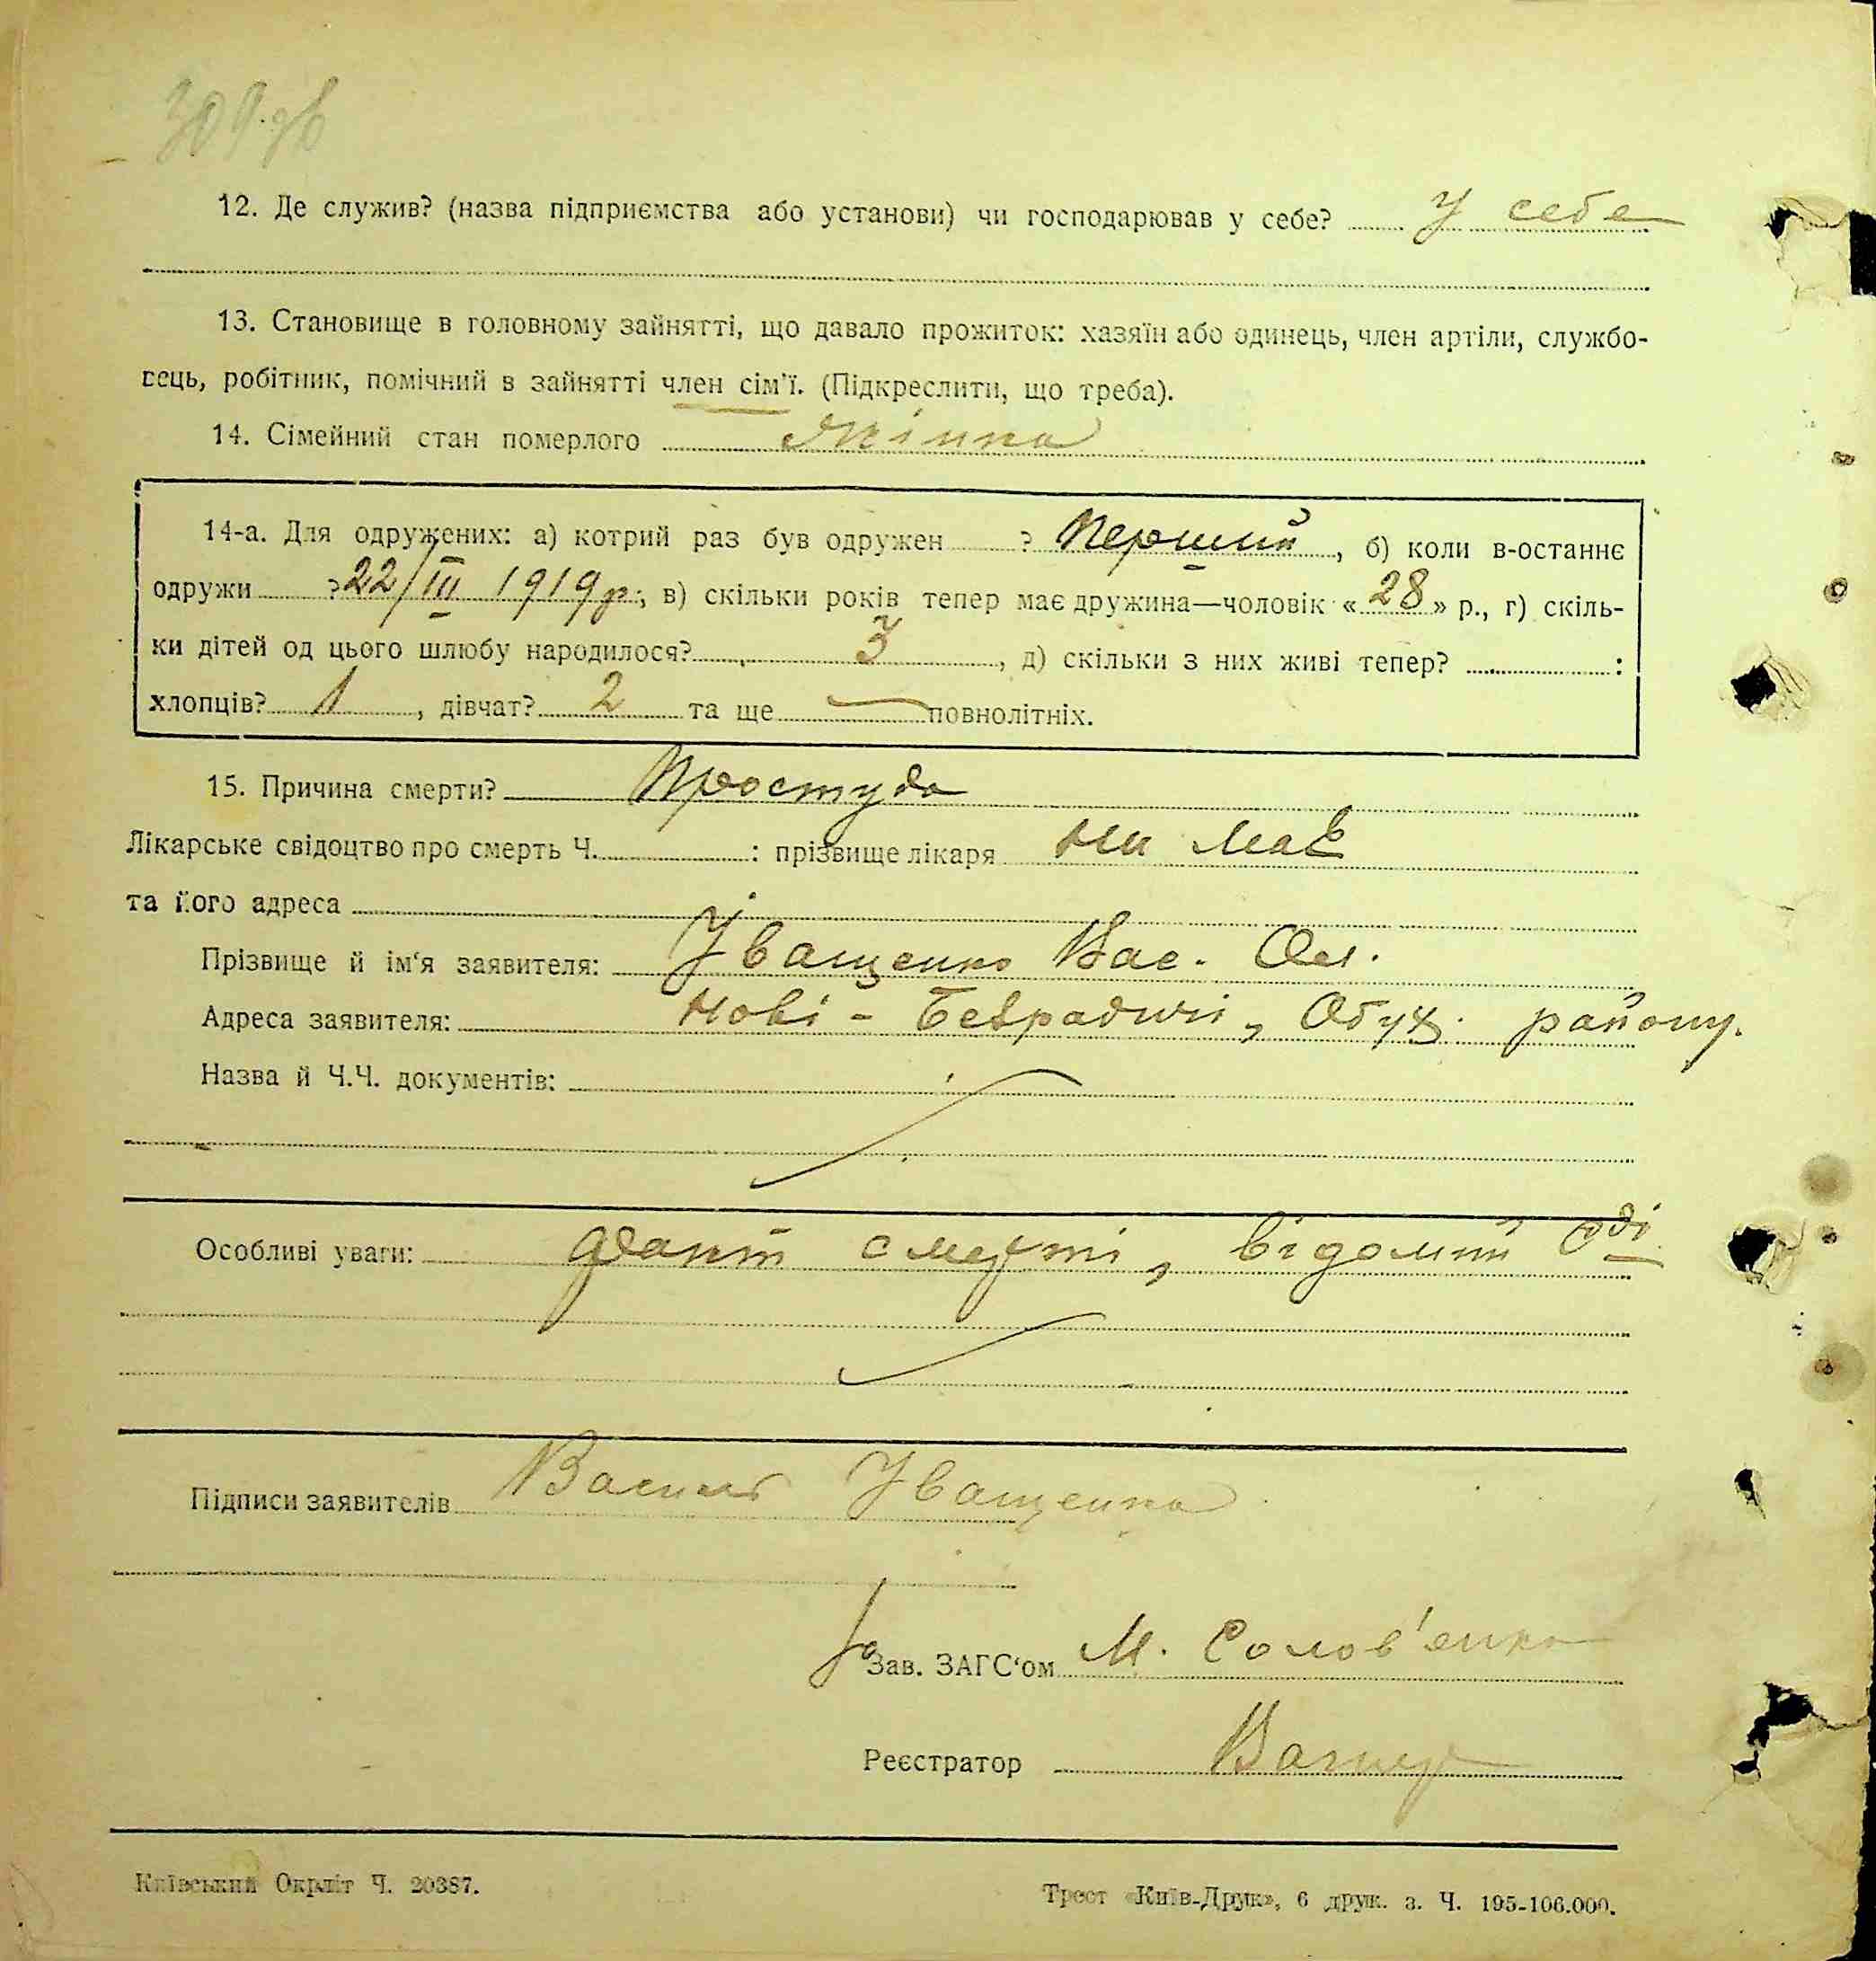 309 зв
12. Де служив? (назва підприємства або установи) чи господарював у себе? У себе
13. Становище в головному зайнятті, що давало прожиток: хазяїн або одинець, член артіли, службо-
вець, робітник, помічний в зайнятті член сім'ї. (Підкреслити, що треба).
14. Сімейний стан померлого жінка
14-а. Для одружених: а) котрий раз був одружен ? Перший, б) коли в-останнє
одружи ? 22/III 1919 р.; в) скільки років тепер має дружина—чоловік «28» р., г) скіль-
ки дітей од цього шлюбу народилося? 3, д) скільки з них живі тепер? :
хлопців? 1, дівчат? 2 та ще — повнолітніх.
15. Причина смерти? Простуда
Лікарське свідоцтво про смерть Ч. : прізвище лікаря Ни має
та його адреса
Прізвище й ім'я заявителя: Іващенко Вас. Ол.
Адреса заявителя: Нові-Безрадичі, Обух. району.
Назва й Ч.Ч. документів:
Особливі уваги: Факт смерті, відомий с/ді
Підписи заявителів Василь Іващенко
За Зав. ЗАГС'ом М. Солов'енко
Реєстратор
Київський Окрліт Ч. 20387.
Трест «Київ-Друк», 6 друк. з. Ч. 195-106.000.